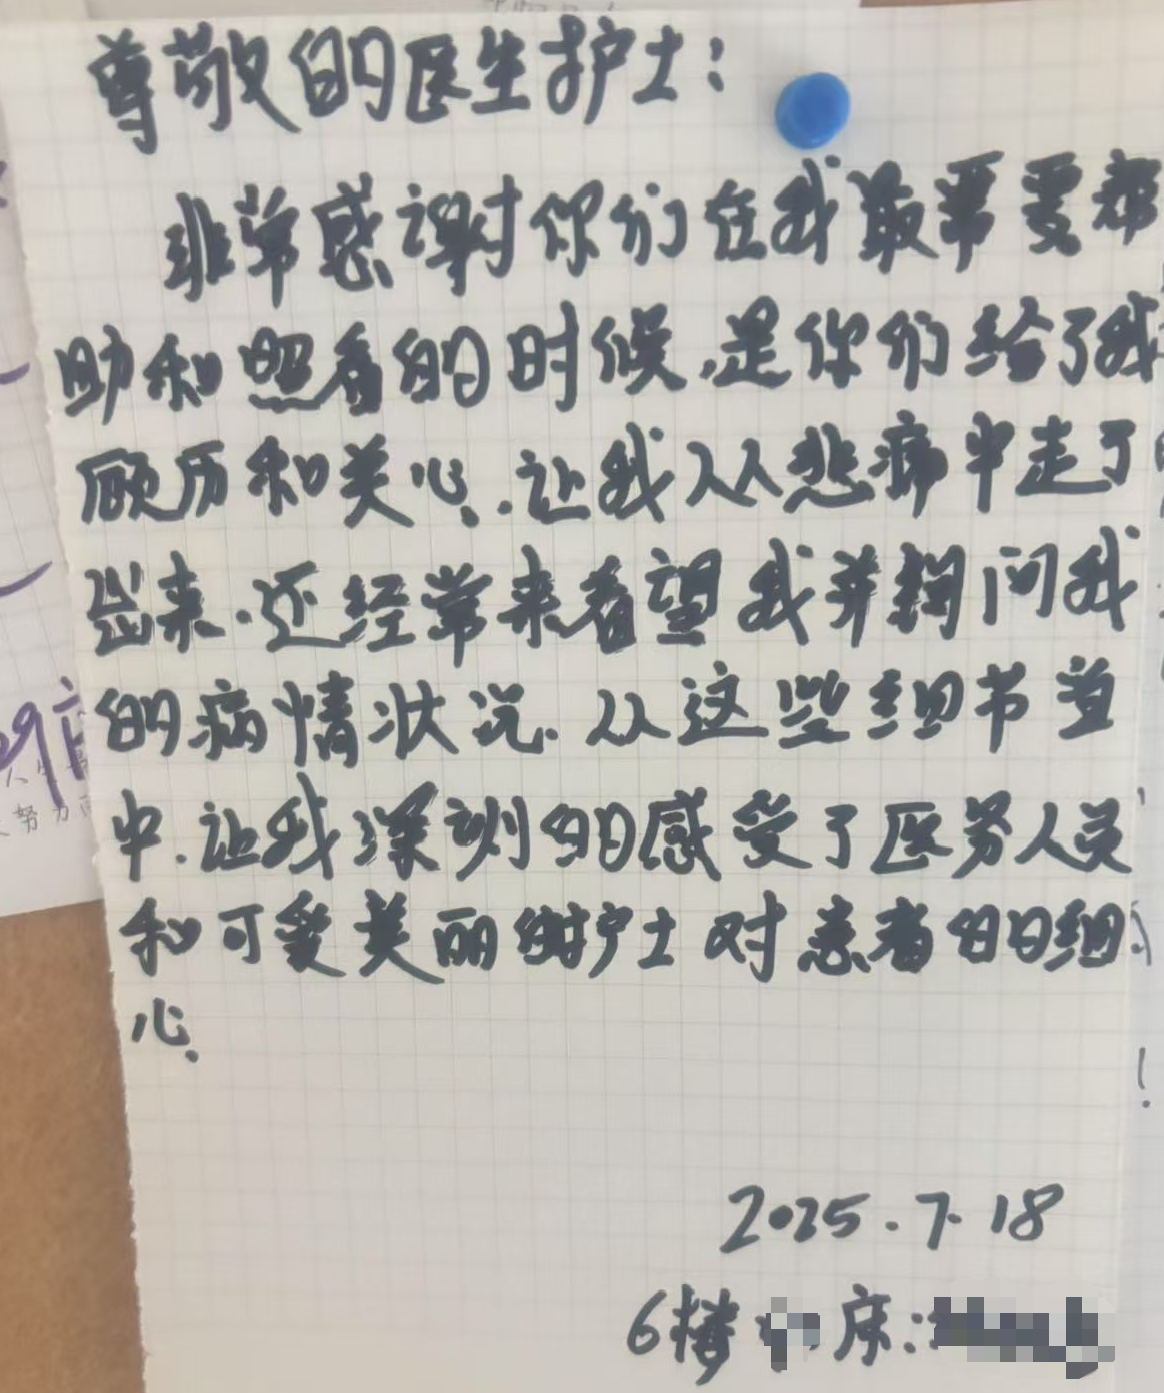 尊敬的医生护士:
非常感谢你们在我最需要帮
助和照看的时候,是你们给了我
顾历和关心.让我从悲痛中走了
出来.还经常来看望我并询问我
的病情状况.从这些细节当
中.让我深刻的感受了医务人员
和可爱美丽的护士对患者的细
心.
2025.7.18
6楼 床:
努力
!